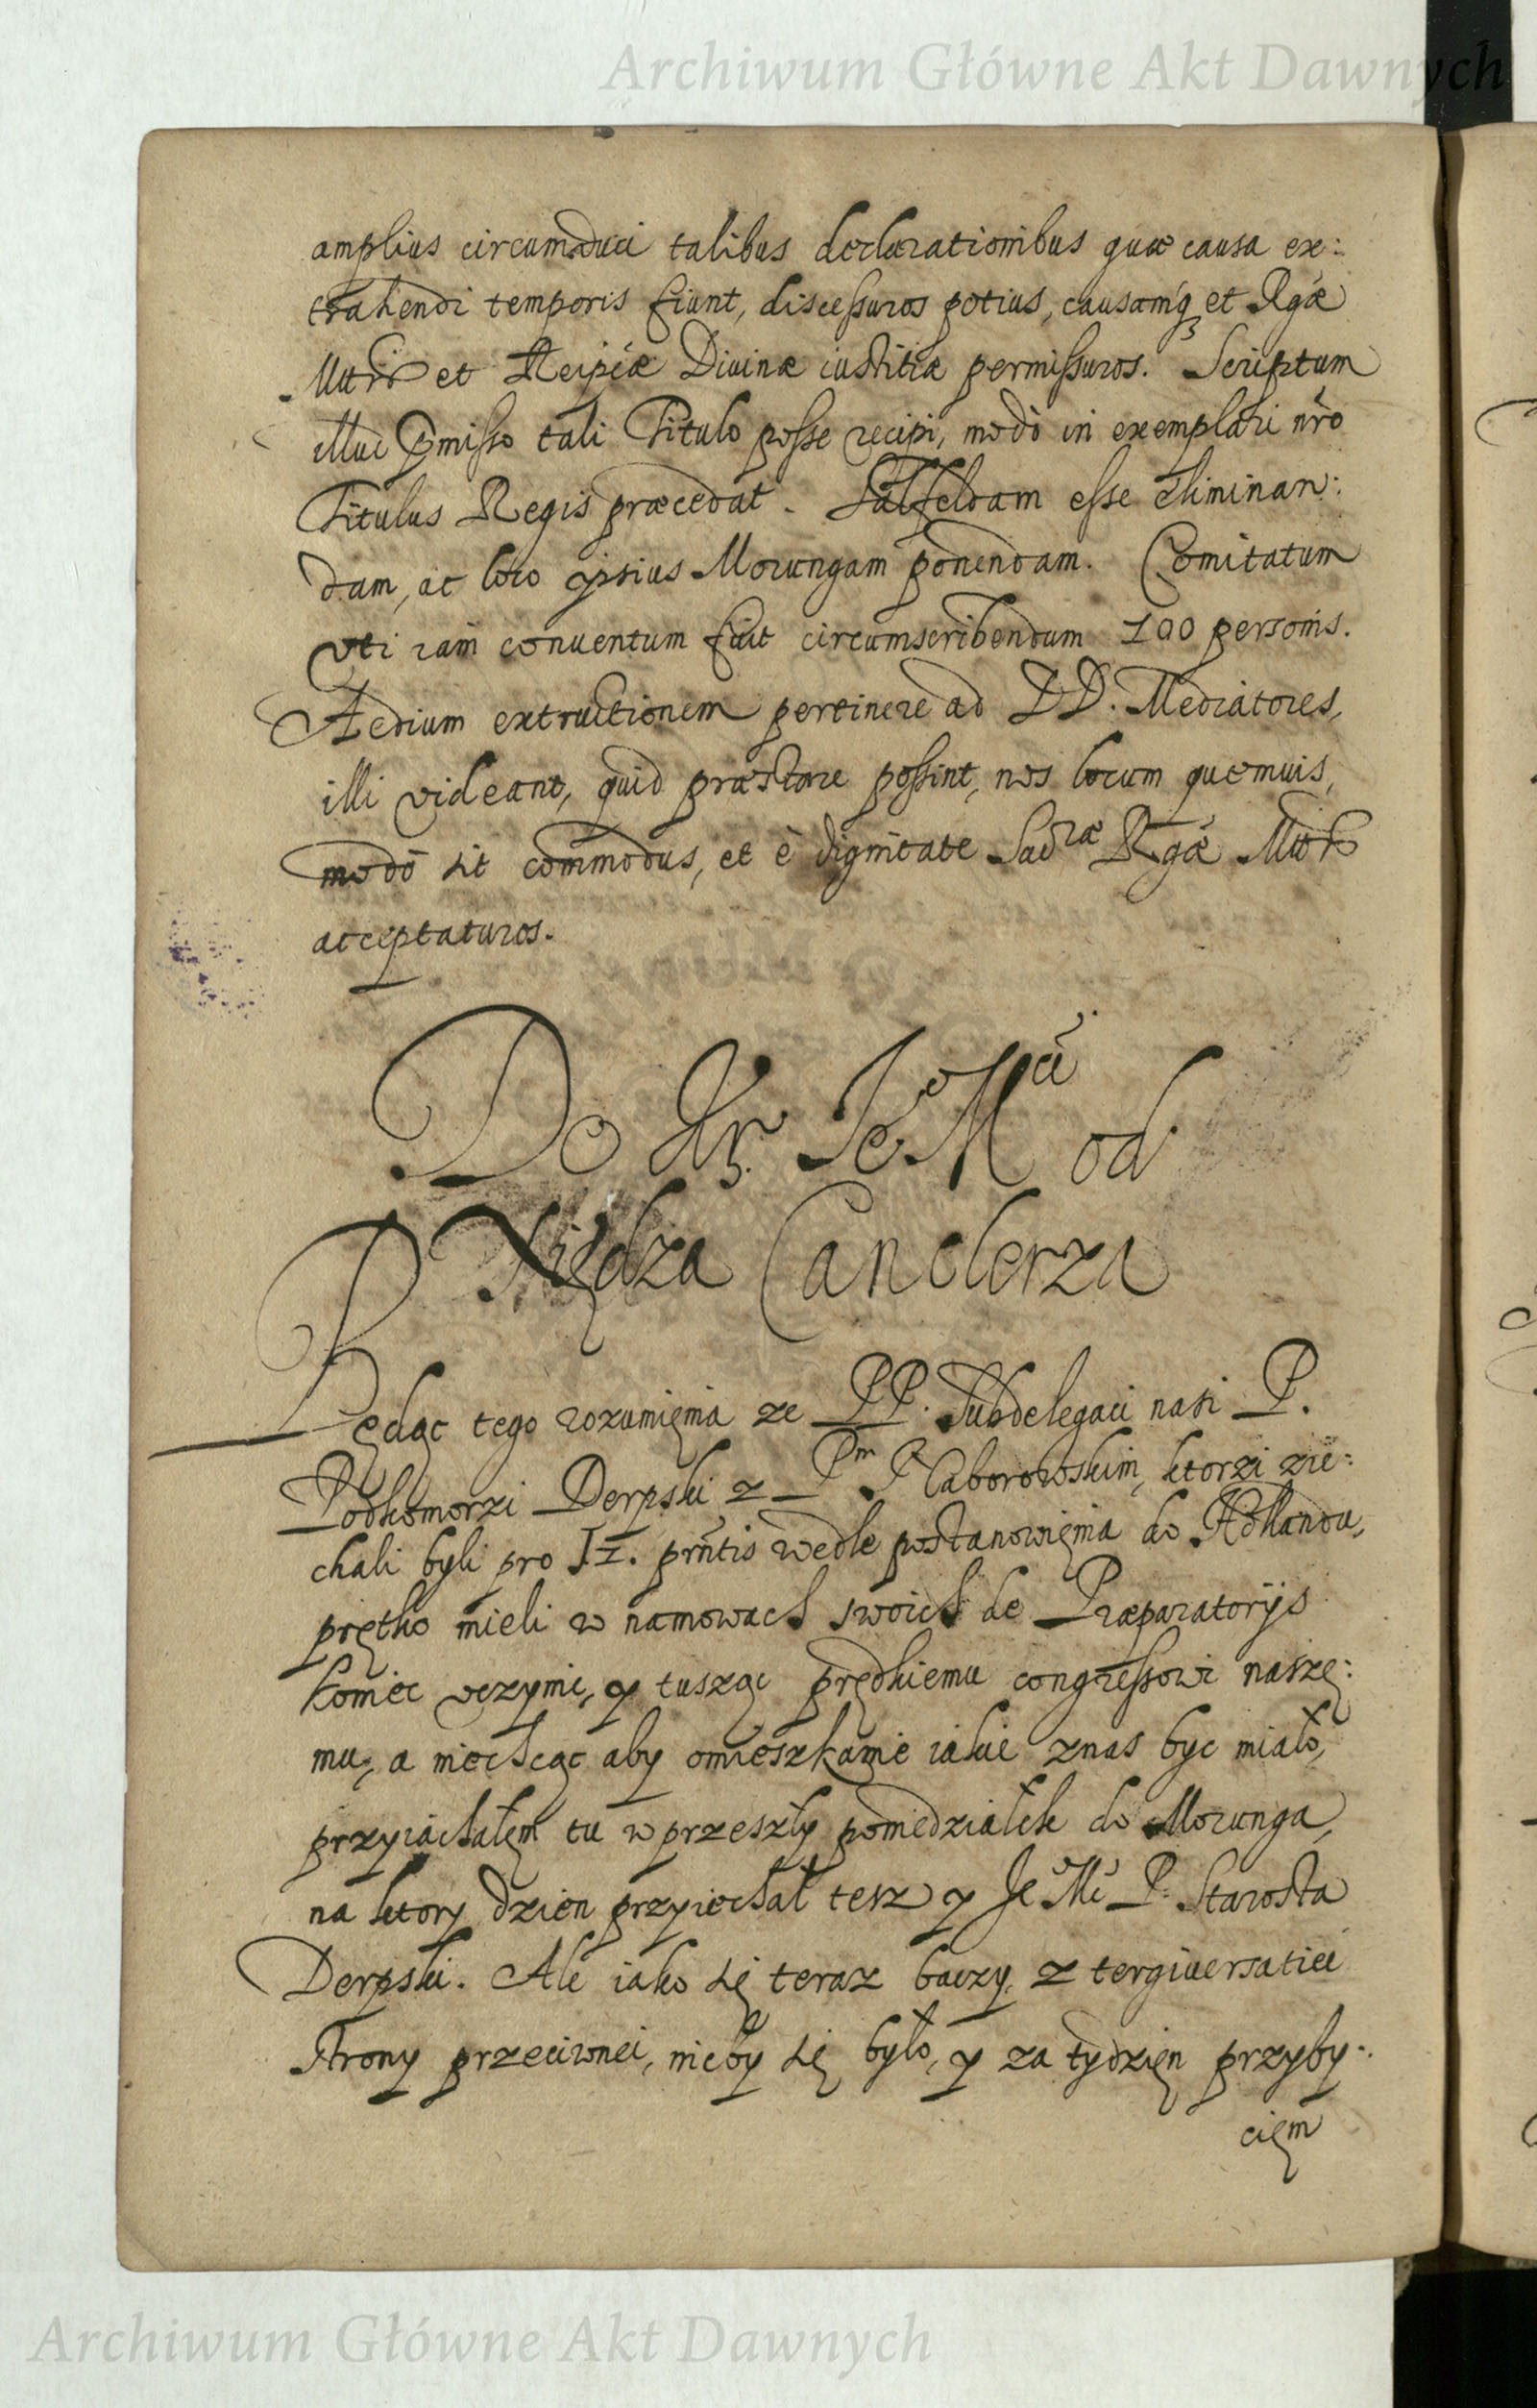 Archiwum Główne Akt Dawnych
amplius circumduci talibus declarationibus quæ causa ex:
trahendi temporis fiunt, discessuros potius, causamq́ et Rgæ
Mtti et Reipcæ Diuinæ iustitiæ permissuros. Scriptum
illud pmisso tali Titulo posse recipi, modò in exemplari nr̃o
Titulus Regis præcedat. Salfeldam esse eliminan:
dam, ac loco ipsius Morungam ponendam. Comitatum
vti iam conuentum fuit circumscribendum 100 personis.
Aedium extructionem pertinere ad DD. Mediatores,
illi videant, quid præstare possint, nos locum quemuis,
modò sit commodus, et è dignitate Sacræ Rgæ Mttis
acceptaturos.
Do Kr. Je͠o Mci od
X Kiędza Canclerza
Będąc tego rozumięnia ze PP. Subdelegaci nasi P.
Podkomorzi Derpski z Pm Kłaborowskim, ktorzi zie:
chali byli pro 12. prñtis wedle postanowięnia do Hollandu,
prętko mieli w namowach swoich de Præparatorijs
koniec vczynic, y tusząc prędkiemu congressowi naszę:
mu, a niechcąc aby omieszkanie iakie znas byc miało,
przyiachałęm tu w przeszły poniedziałek do Morunga,
na ktory dzien przyiechał tesz y Je͠ Mc P. Starosta
Derpski. Ale iako się teraz baczy z tergiuersatiei
strony przeciwnei, nicby się było, y za tydzięn przyby:
cięm
Archiwum Główne Akt Dawnych